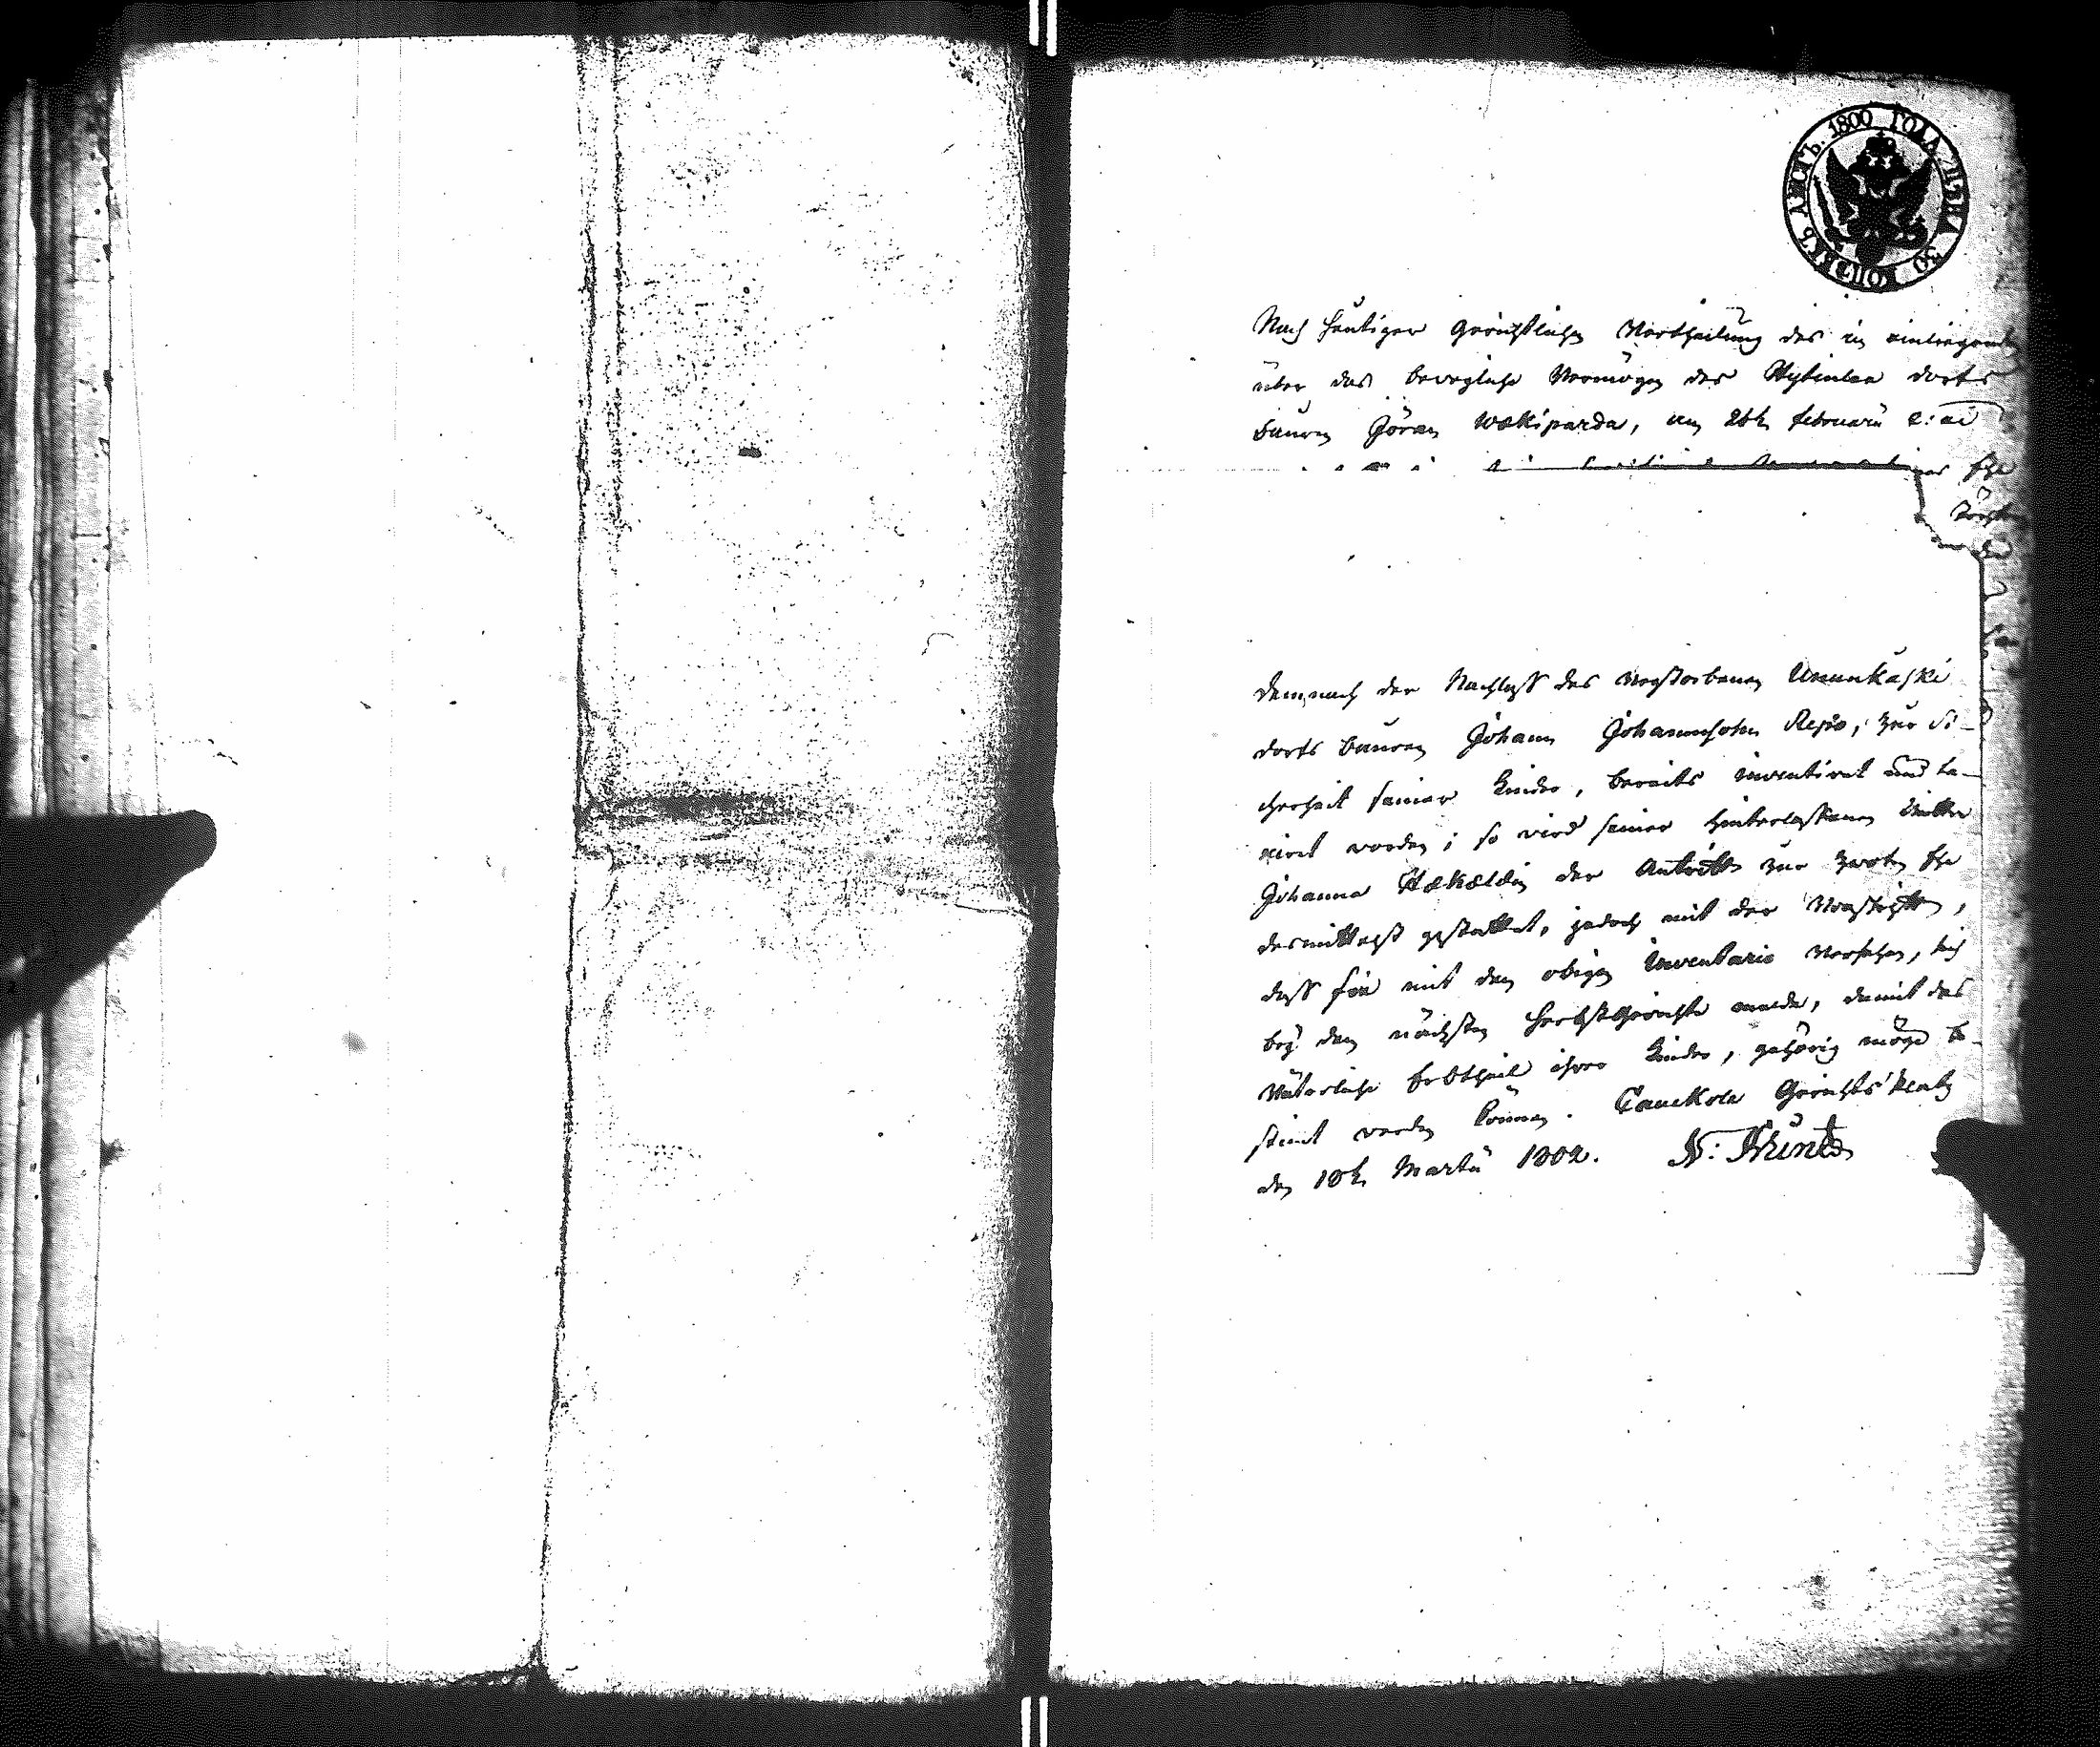 1800 ГОДА ЦѢНА 30 КОПѢЕКЪ ЛИСТЪ.
Nach heutiger gerichtlichen Vertheilung des in einliegenden
über das bewegliche Vermögen des dorfs
bauren Göran Wækiparda, am 26t Februarii
Ehe
Demnach der Nachlass des verstorbenen Ununkaski
dorfs bauren Johann Johannsohn Repo, zur Si-
cherheit seiner Kinder, bereits inventiret und ta-
xiret worden; so wird seiner hinterlassenen Wittwe
Johanna der Antritt zur zwoten Ehe
desmittelst gestattet, jedoch mit der Vorsicht,
dass sie mit dem obigen Inventario versehen, sich
bey dem nächsten Herbstgerichte melde, damit das
Väterliche Erbtheil ihrer Kinder, gehörig möge be-
stimt werden können. Cauckola Gerichts
den 18t Martii 1802.